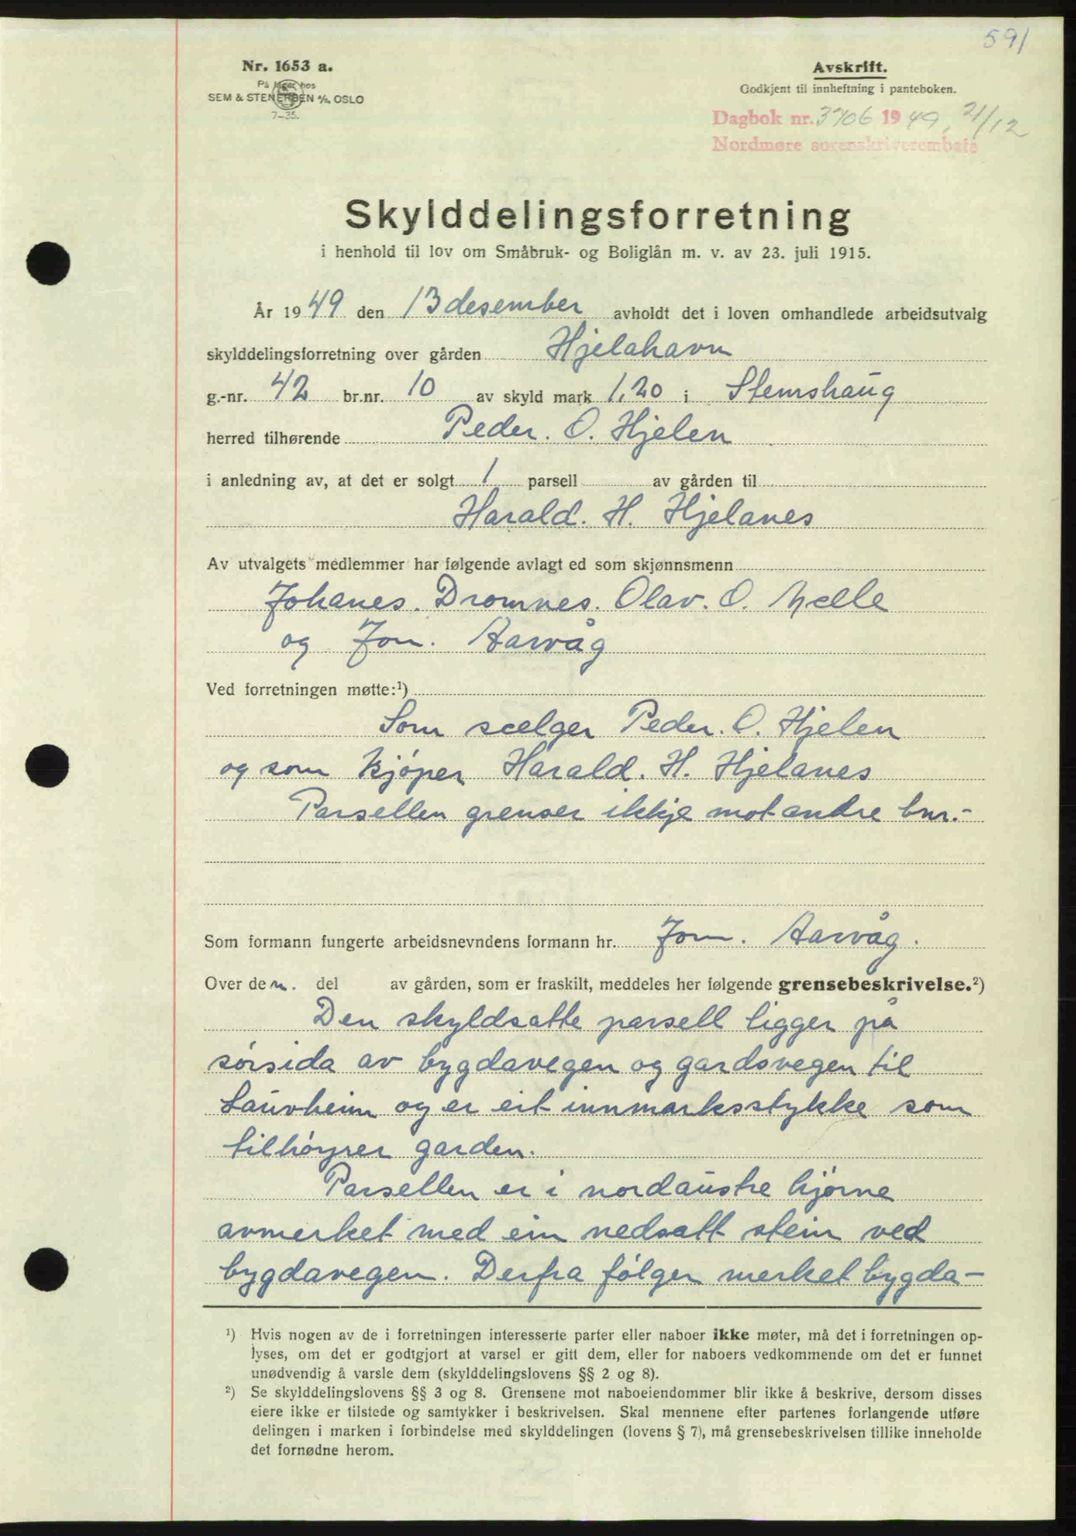 591
Nr. 1653 a.
På lager hos
SEM & STENERSEN A/S, OSLO
7-35.
Avskrift.
Godkjent til innheftning i panteboken.
Dagbok nr. 3706 1949, 21/12
Nordmøre sorenskriverembete
Skylddelingsforretning
i henhold til lov om Småbruk- og Boliglån m. v. av 23. juli 1915.
År 1949 den 13 desember avholdt det i loven omhandlede arbeidsutvalg
skylddelingsforretning over gården Hjelahavn
g.-nr. 42 br.nr. 10 av skyld mark 1,20 i Stemshaug
herred tilhørende Peder. O. Hjelen
i anledning av, at det er solgt 1 parsell av gården til
Harald. H. Hjelanes
Av utvalgets medlemmer har følgende avlagt ed som skjønnsmenn
Johanes. Dromnes. Olav. O. Melle
og Jon. Aarvåg
Ved forretningen møtte:¹)
Som sælger Peder. O. Hjelen
og som kjøper Harald. H. Hjelanes
Parsellen grenser ikkje mot andre bnr.-
Som formann fungerte arbeidsnevndens formann hr. Jon. Aarvåg.
Over den. del av gården, som er fraskilt, meddeles her følgende grensebeskrivelse.²)
Den skyldsatte parsell ligger på
sørsida av bygdavegen og gardsvegen til
Lauvheim og er eit innmarksstykke som
tilhøyrer garden.
Parsellen er i nordaustre hjørne
avmerket med ein nedsatt stein ved
bygdavegen. Derfra følger merket bygda-
¹) Hvis nogen av de i forretningen interesserte parter eller naboer ikke møter, må det i forretningen op-
lyses, om det er godtgjort at varsel er gitt dem, eller for naboers vedkommende om det er funnet
unødvendig å varsle dem (skylddelingslovens §§ 2 og 8).
²) Se skylddelingslovens §§ 3 og 8. Grensene mot naboeiendommer blir ikke å beskrive, dersom disses
eiere ikke er tilstede og samtykker i beskrivelsen. Skal mennene efter partenes forlangende utføre
delingen i marken i forbindelse med skylddelingen (lovens § 7), må grensebeskrivelsen tillike inneholde
det fornødne herom.